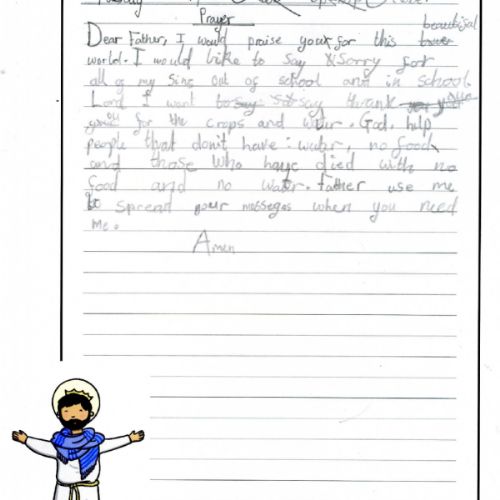 Prayer
beautiful
Dear Father, I would praise you for this
world. I would like to say sorry for
all of my sins out of school and in school.
Lord I want to say thank
you for the crops and water. God, help
people that don't have : water, no food
and those who have died with no
food and no water. Father use me
to spread your messegas when you need
me.
Amen